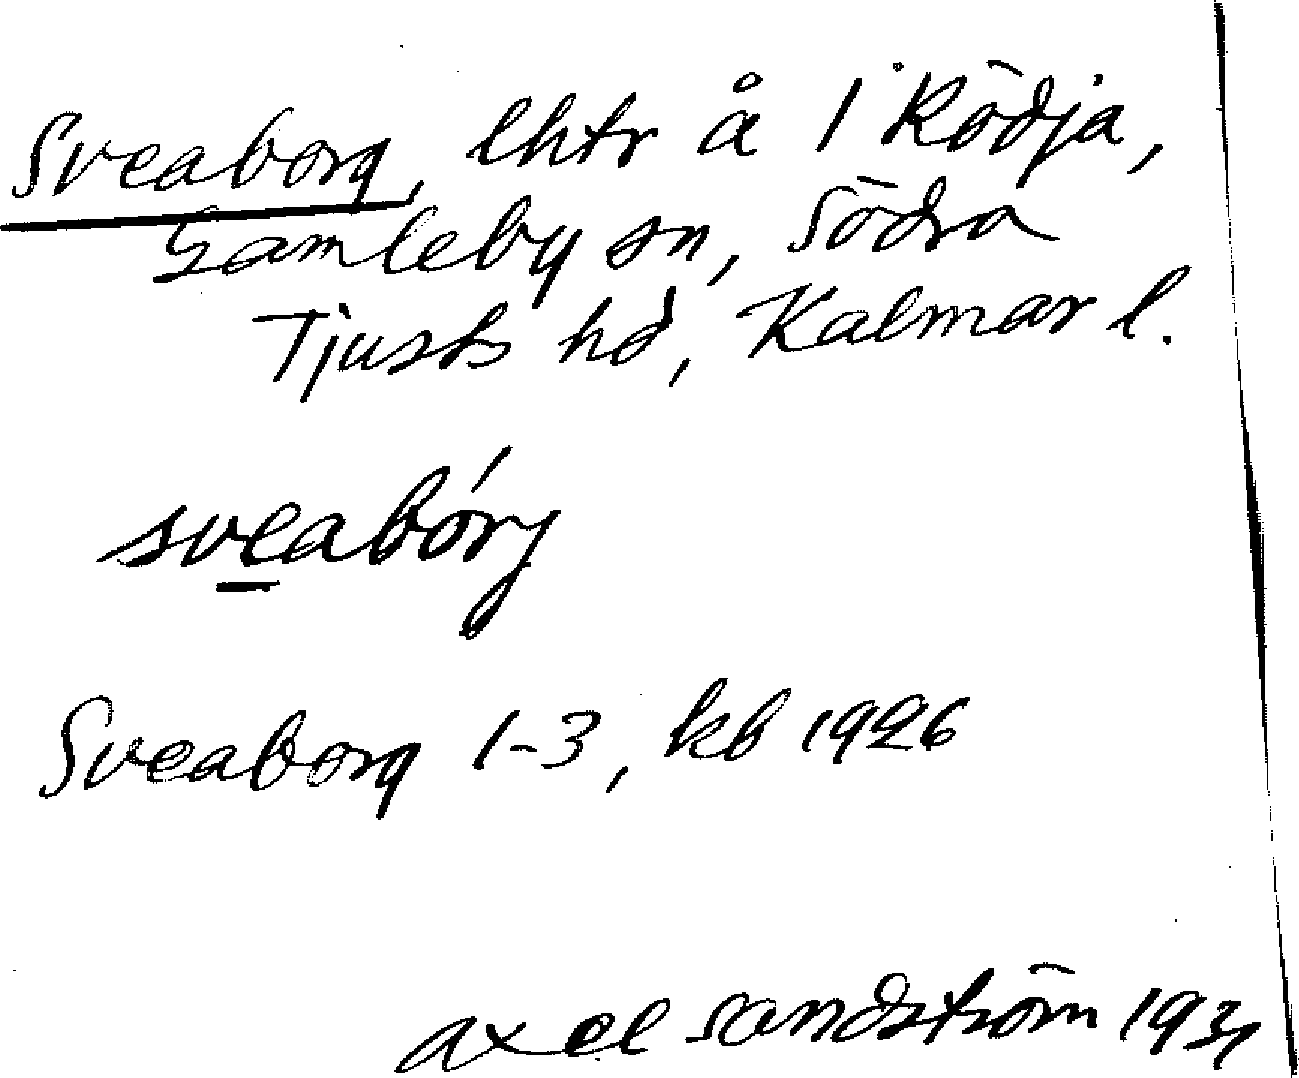 Sveaborg, lhtr å 1 Rödja,
Gamleby sn, Södra
Tjusts hd, Kalmar l.
sveabórj
Sveaborg 1-3, kb 1926
Axel Sandström